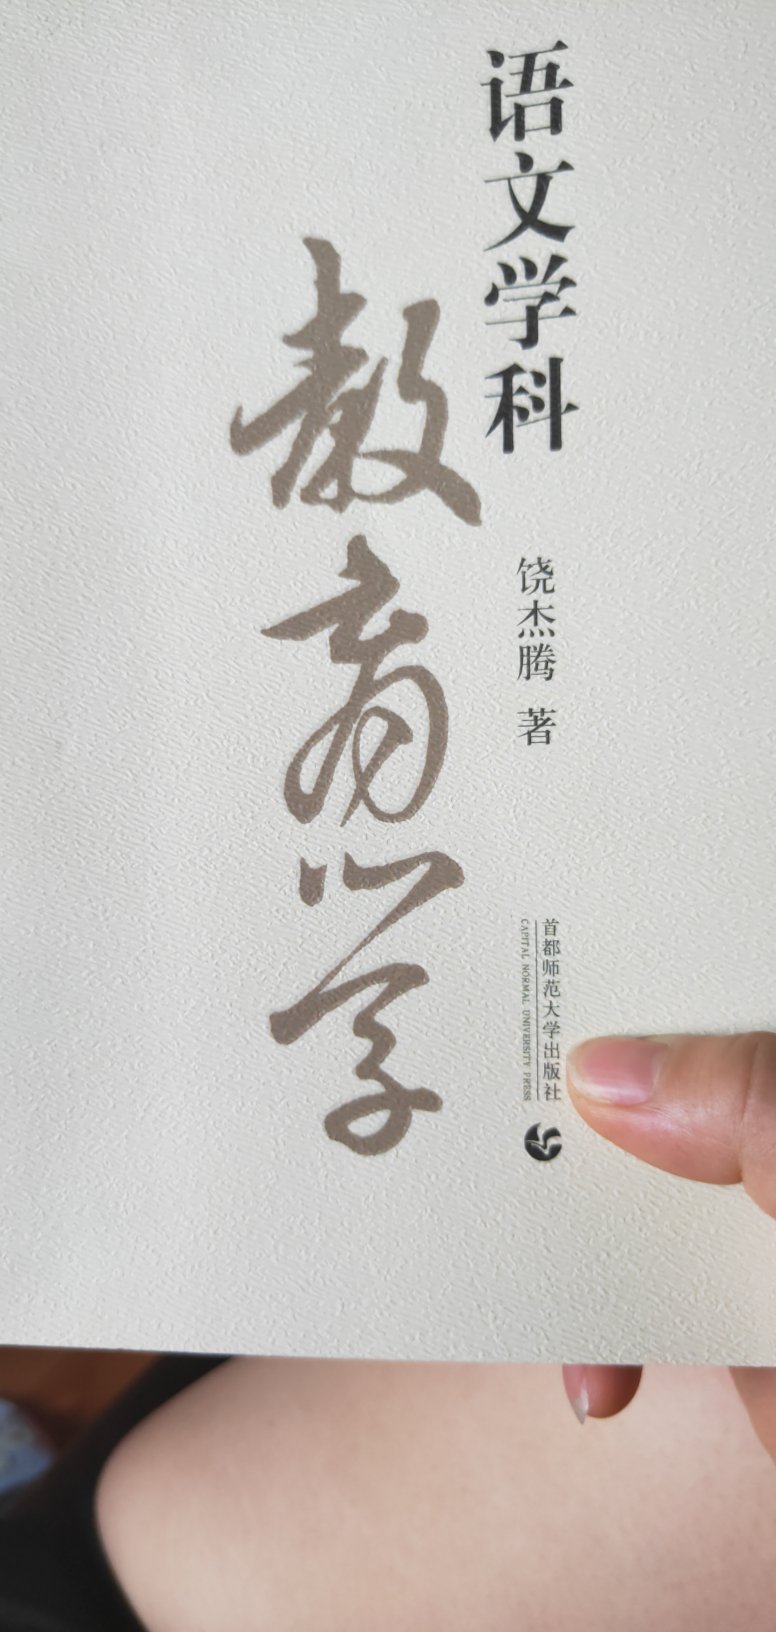 语文学科
教育心学
饶杰腾 著
首都师范大学出版社
CAPITAL NORMAL UNIVERSITY PRESS